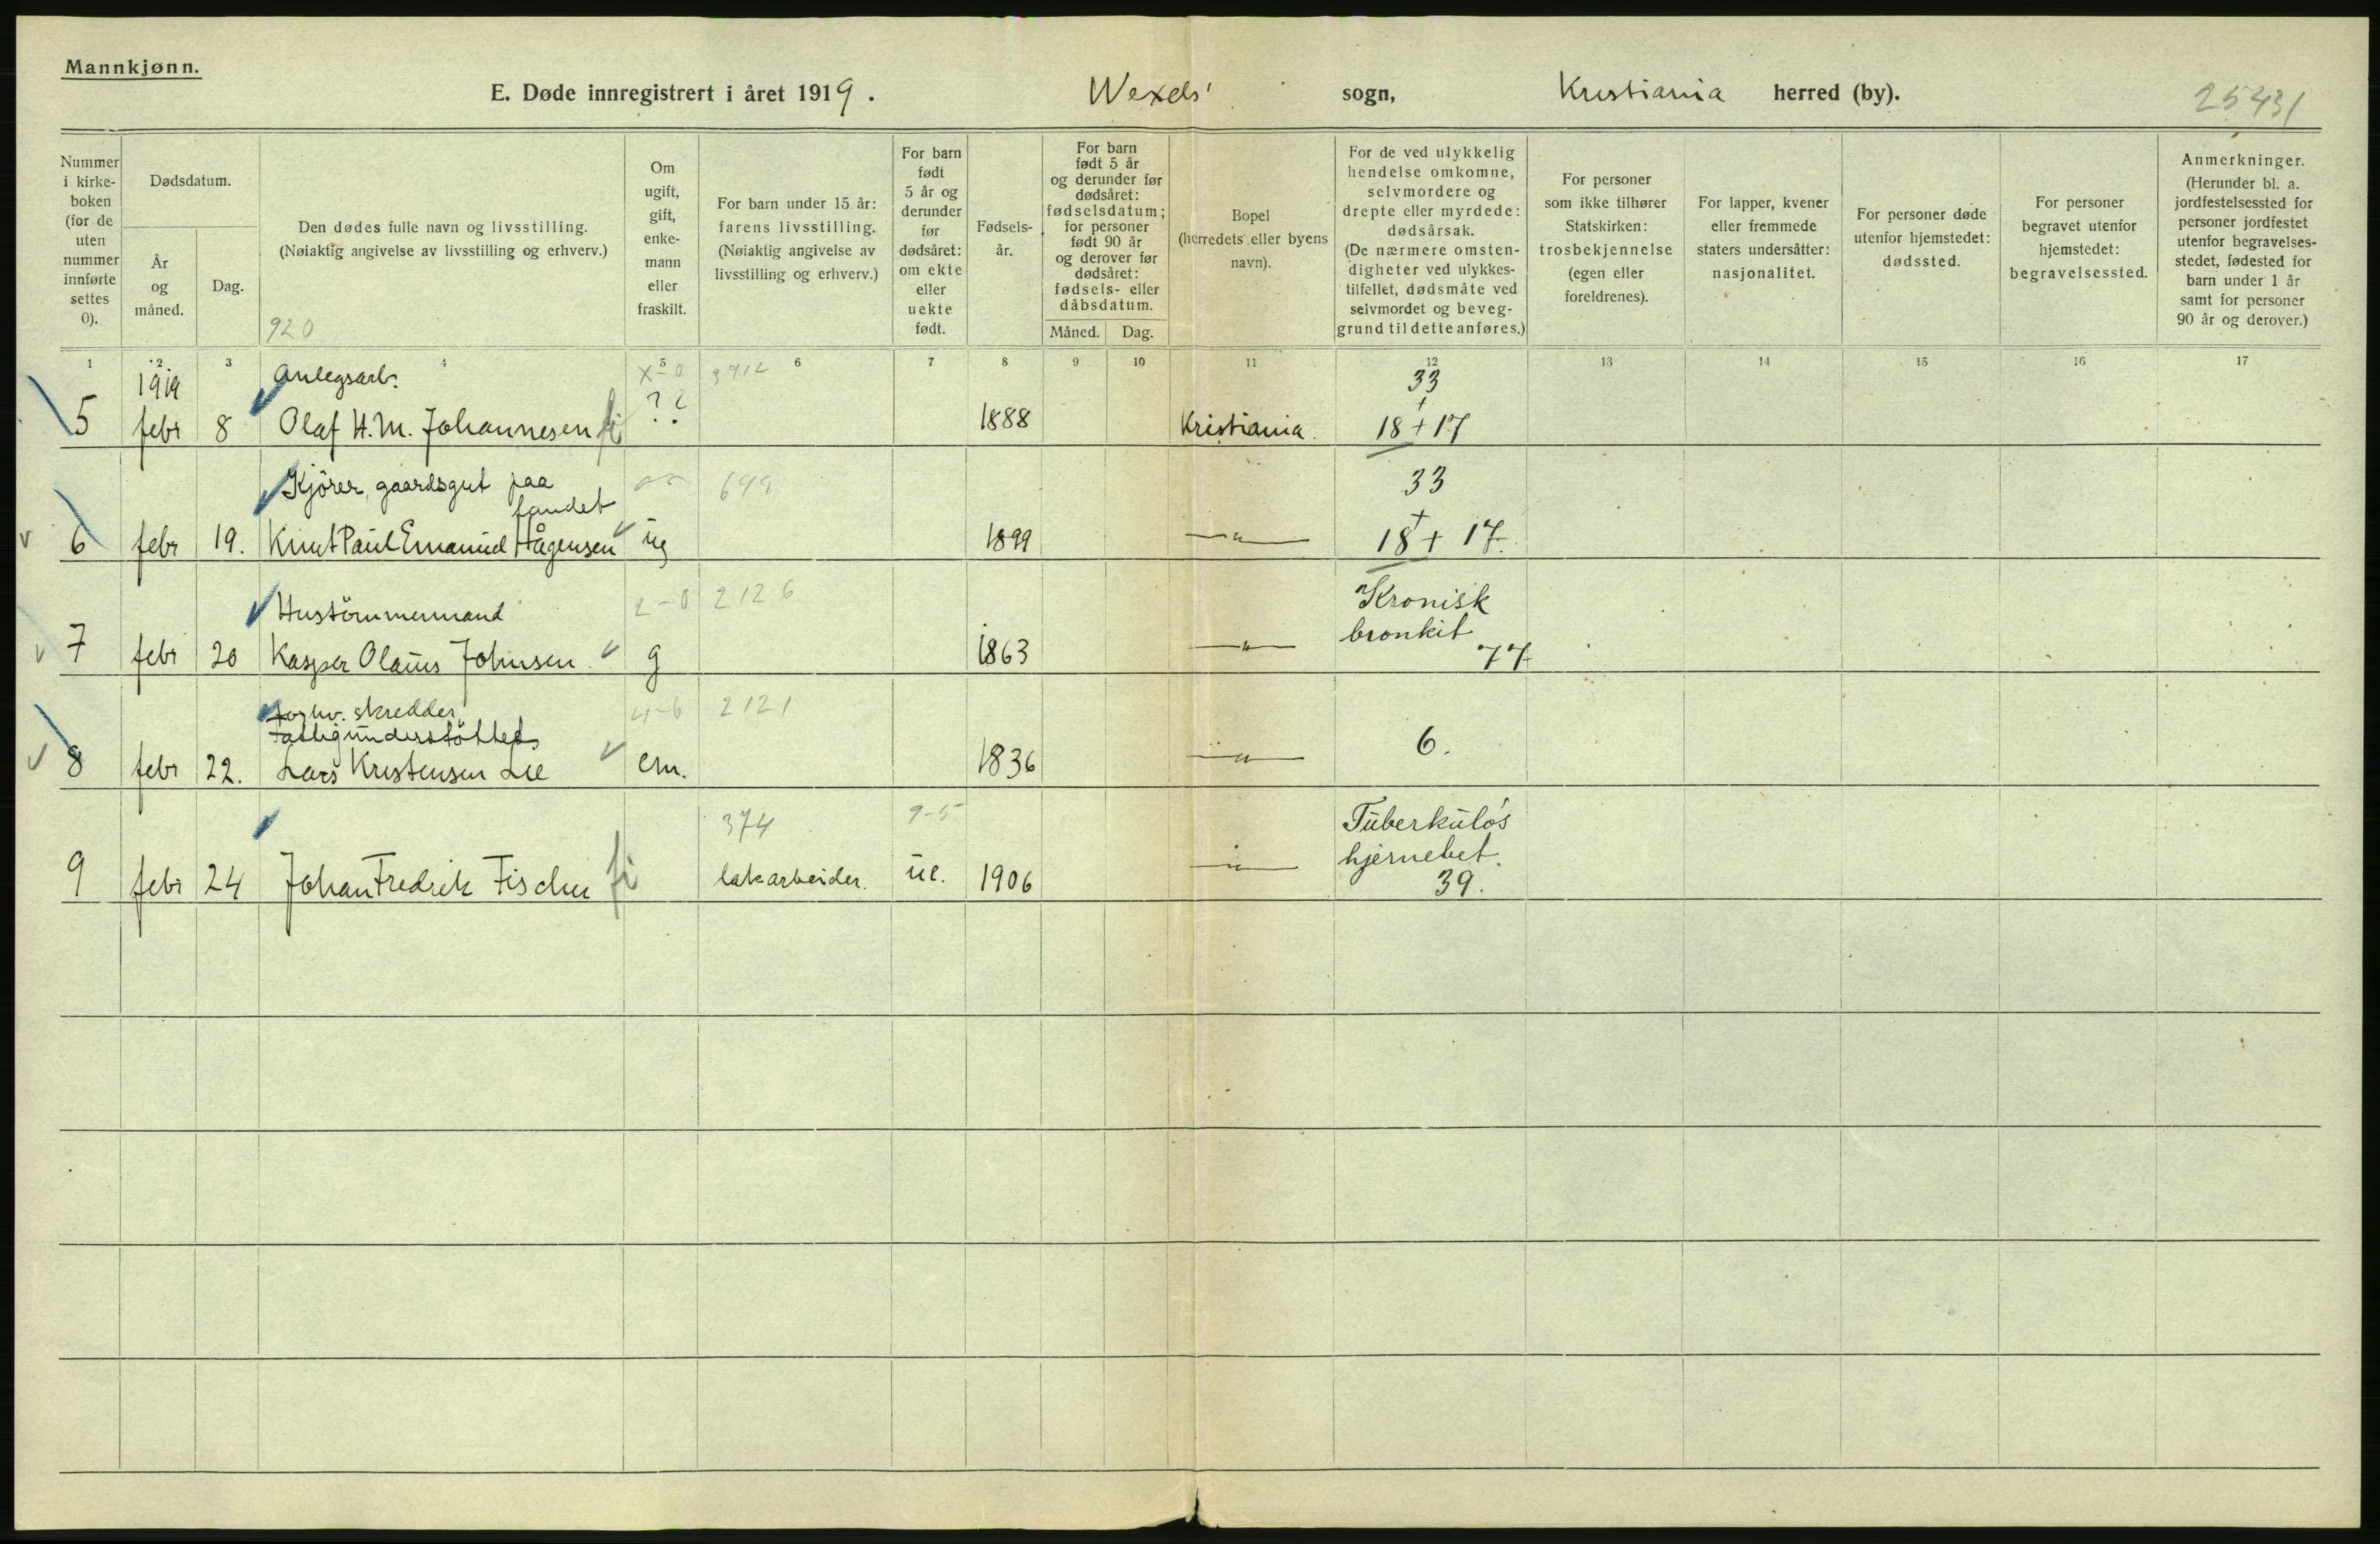 Mannkjønn.
E. Døde innregistrert i året 1919. Wexels' sogn, Kristiania herred (by). 25431
Nummer i kirke- boken (for de uten nummer innførte settes 0).
Dødsdatum.
År og måned.
Dag.
Den dødes fulle navn og livsstilling.
(Nøiaktig angivelse av livsstilling og erhverv.)
920
Om ugift, gift, enke- mann eller fraskilt.
For barn under 15 år:
farens livsstilling.
(Nøiaktig angivelse av livsstilling og erhverv.)
For barn født 5 år og derunder før dødsåret: om ekte eller uekte født.
Fødsels- år.
For barn født 5 år og derunder før dødsåret: fødselsdatum; for personer født 90 år og derover før dødsåret: fødsels- eller dåbsdatum.
Måned. Dag.
Bopel (herredets eller byens navn).
For de ved ulykkelig hendelse omkomne, selvmordere og drepte eller myrdede: dødsårsak. (De nærmere omsten- digheter ved ulykkes- tilfellet, dødsmåte ved selvmordet og beveg- grund til dette anføres.)
For personer som ikke tilhører Statskirken: trosbekjennelse (egen eller foreldrenes).
For lapper, kvener eller fremmede staters undersåtter: nasjonalitet.
For personer døde utenfor hjemstedet: dødssted.
For personer begravet utenfor hjemstedet: begravelsessted.
Anmerkninger. (Herunder bl. a. jordfestelsessted for personer jordfestet utenfor begravelses- stedet, fødested for barn under 1 år samt for personer 90 år og derover.)
1 2 3 4 5 6 7 8 9 10 11 12 13 14 15 16 17
1919 Anlegsarb. x-0 3912 33
+
5 febr 8 Olaf H. M. Johannesen fi ? ? 1888 Kristiania. 18 + 17
Kjörer, gaardsgut paa 698 33
landet +
6 febr 19. Knut Paul Emanuel Hågensen ug 1899 —"— 18 + 17.
Hustömmermand 2-0 2126 Kronisk
bronkit
7 febr 20 Kasper Olaus Johnsen g 1863 —"— 77
forhv. skredder, 4-6 2121
fattigunderstöttet
8 febr 22. Lars Kristensen Lie em. 1836 —"— 6.
374 9-5 Tuberkulös
hjernebet.
9 febr 24 Johan Fredrik Fischer fi lakarbeider. ue. 1906 —"— 39.